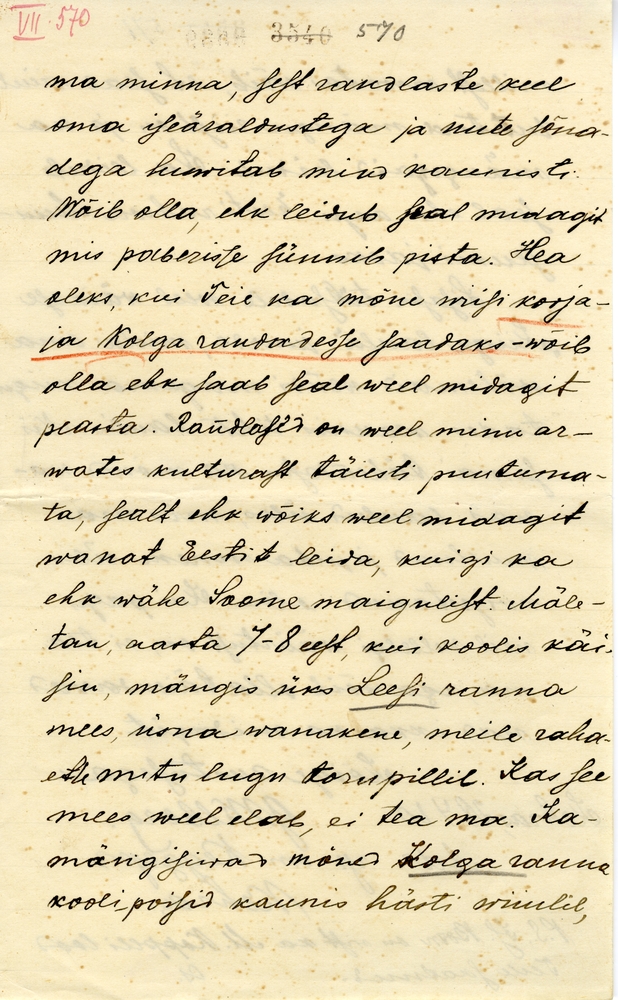 VII 570
3540 570
ma minna, sest randlaste keel
oma iseäraldustega ja mute sõna-
dega huwitab mind kaunisti.
Wõib olla, ehk leidub seal midagit
mis paberisse sünnib pista. Hea
oleks, kui Teie ka mõne wiisi korja-
ja Kolga randadesse saadaks - wõib
olla ehk saab seal weel midagit
peasta. Rañdlased on weel minu ar-
wates kulturast täiesti puutuma-
ta, sealt ehk wõiks weel midagit
wanat Eestit leida, kuigi ka
ehk wähe Soome maigulist. Mäle-
tan, aasta 7-8 eest, kui koolis käi-
sin, mängis üks Leesi ranna
mees, üsna wanakene, meile raha-
ette mitu lugu torupillil. Kas see
mees weel elab, ei tea ma. Ka-
mängisiwad mõned Kolga ranna
kooli poisid kaunis hästi wiiulil,